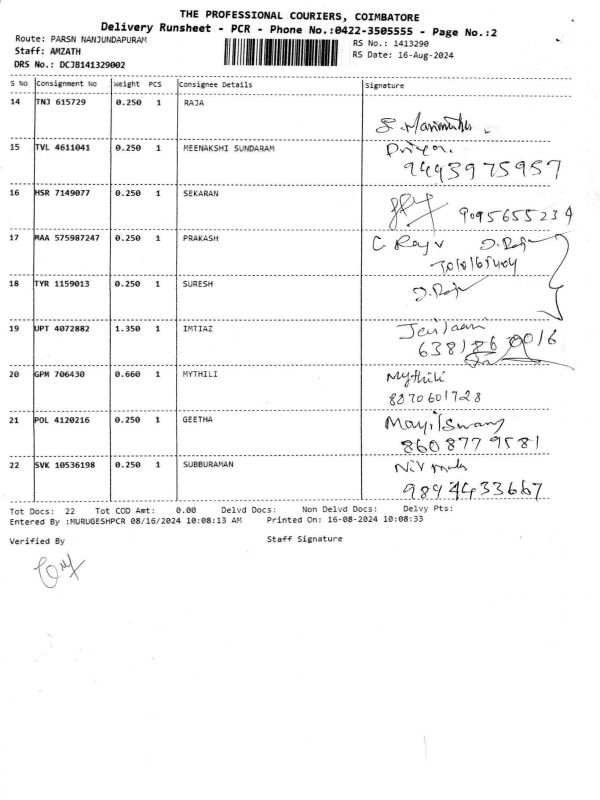 THE PROFESSIONAL COURIERS, COIMBATORE
Delivery Runsheet - PCR - Phone No.:0422-3505555 - Page No.:2
Route: PARSN NANJUNDAPURAM
RS No.: 1413290
Staff: AMZATH
RS Date: 16-Aug-2024
DRS No.: DCJB141329002
S No Consignment No Weight PCS Consignee Details Signature
14 TNJ 615729 0.250 1 RAJA
15 TVL 4611041 0.250 1 MEENAKSHI SUNDARAM
9443975957
16 HSR 7149077 0.250 1 SEKARAN
9095655234
17 MAA 575987247 0.250 1 PRAKASH C Raju
18 TYR 1159013 0.250 1 SURESH
19 UPT 4072882 1.350 1 IMTIAZ
20 GPM 706430 0.660 1 MYTHILI Mythili
8870601728
21 POL 4120216 0.250 1 GEETHA Mayilswamy
8608779581
22 SVK 10536198 0.250 1 SUBBURAMAN Nirmala
9894433667
Tot Docs: 22 Tot COD Amt: 0.00 Delvd Docs: Non Delvd Docs: Delvy Pts:
Entered By :MURUGESHPCR 08/16/2024 10:08:13 AM Printed On: 16-08-2024 10:08:33
Verified By Staff Signature